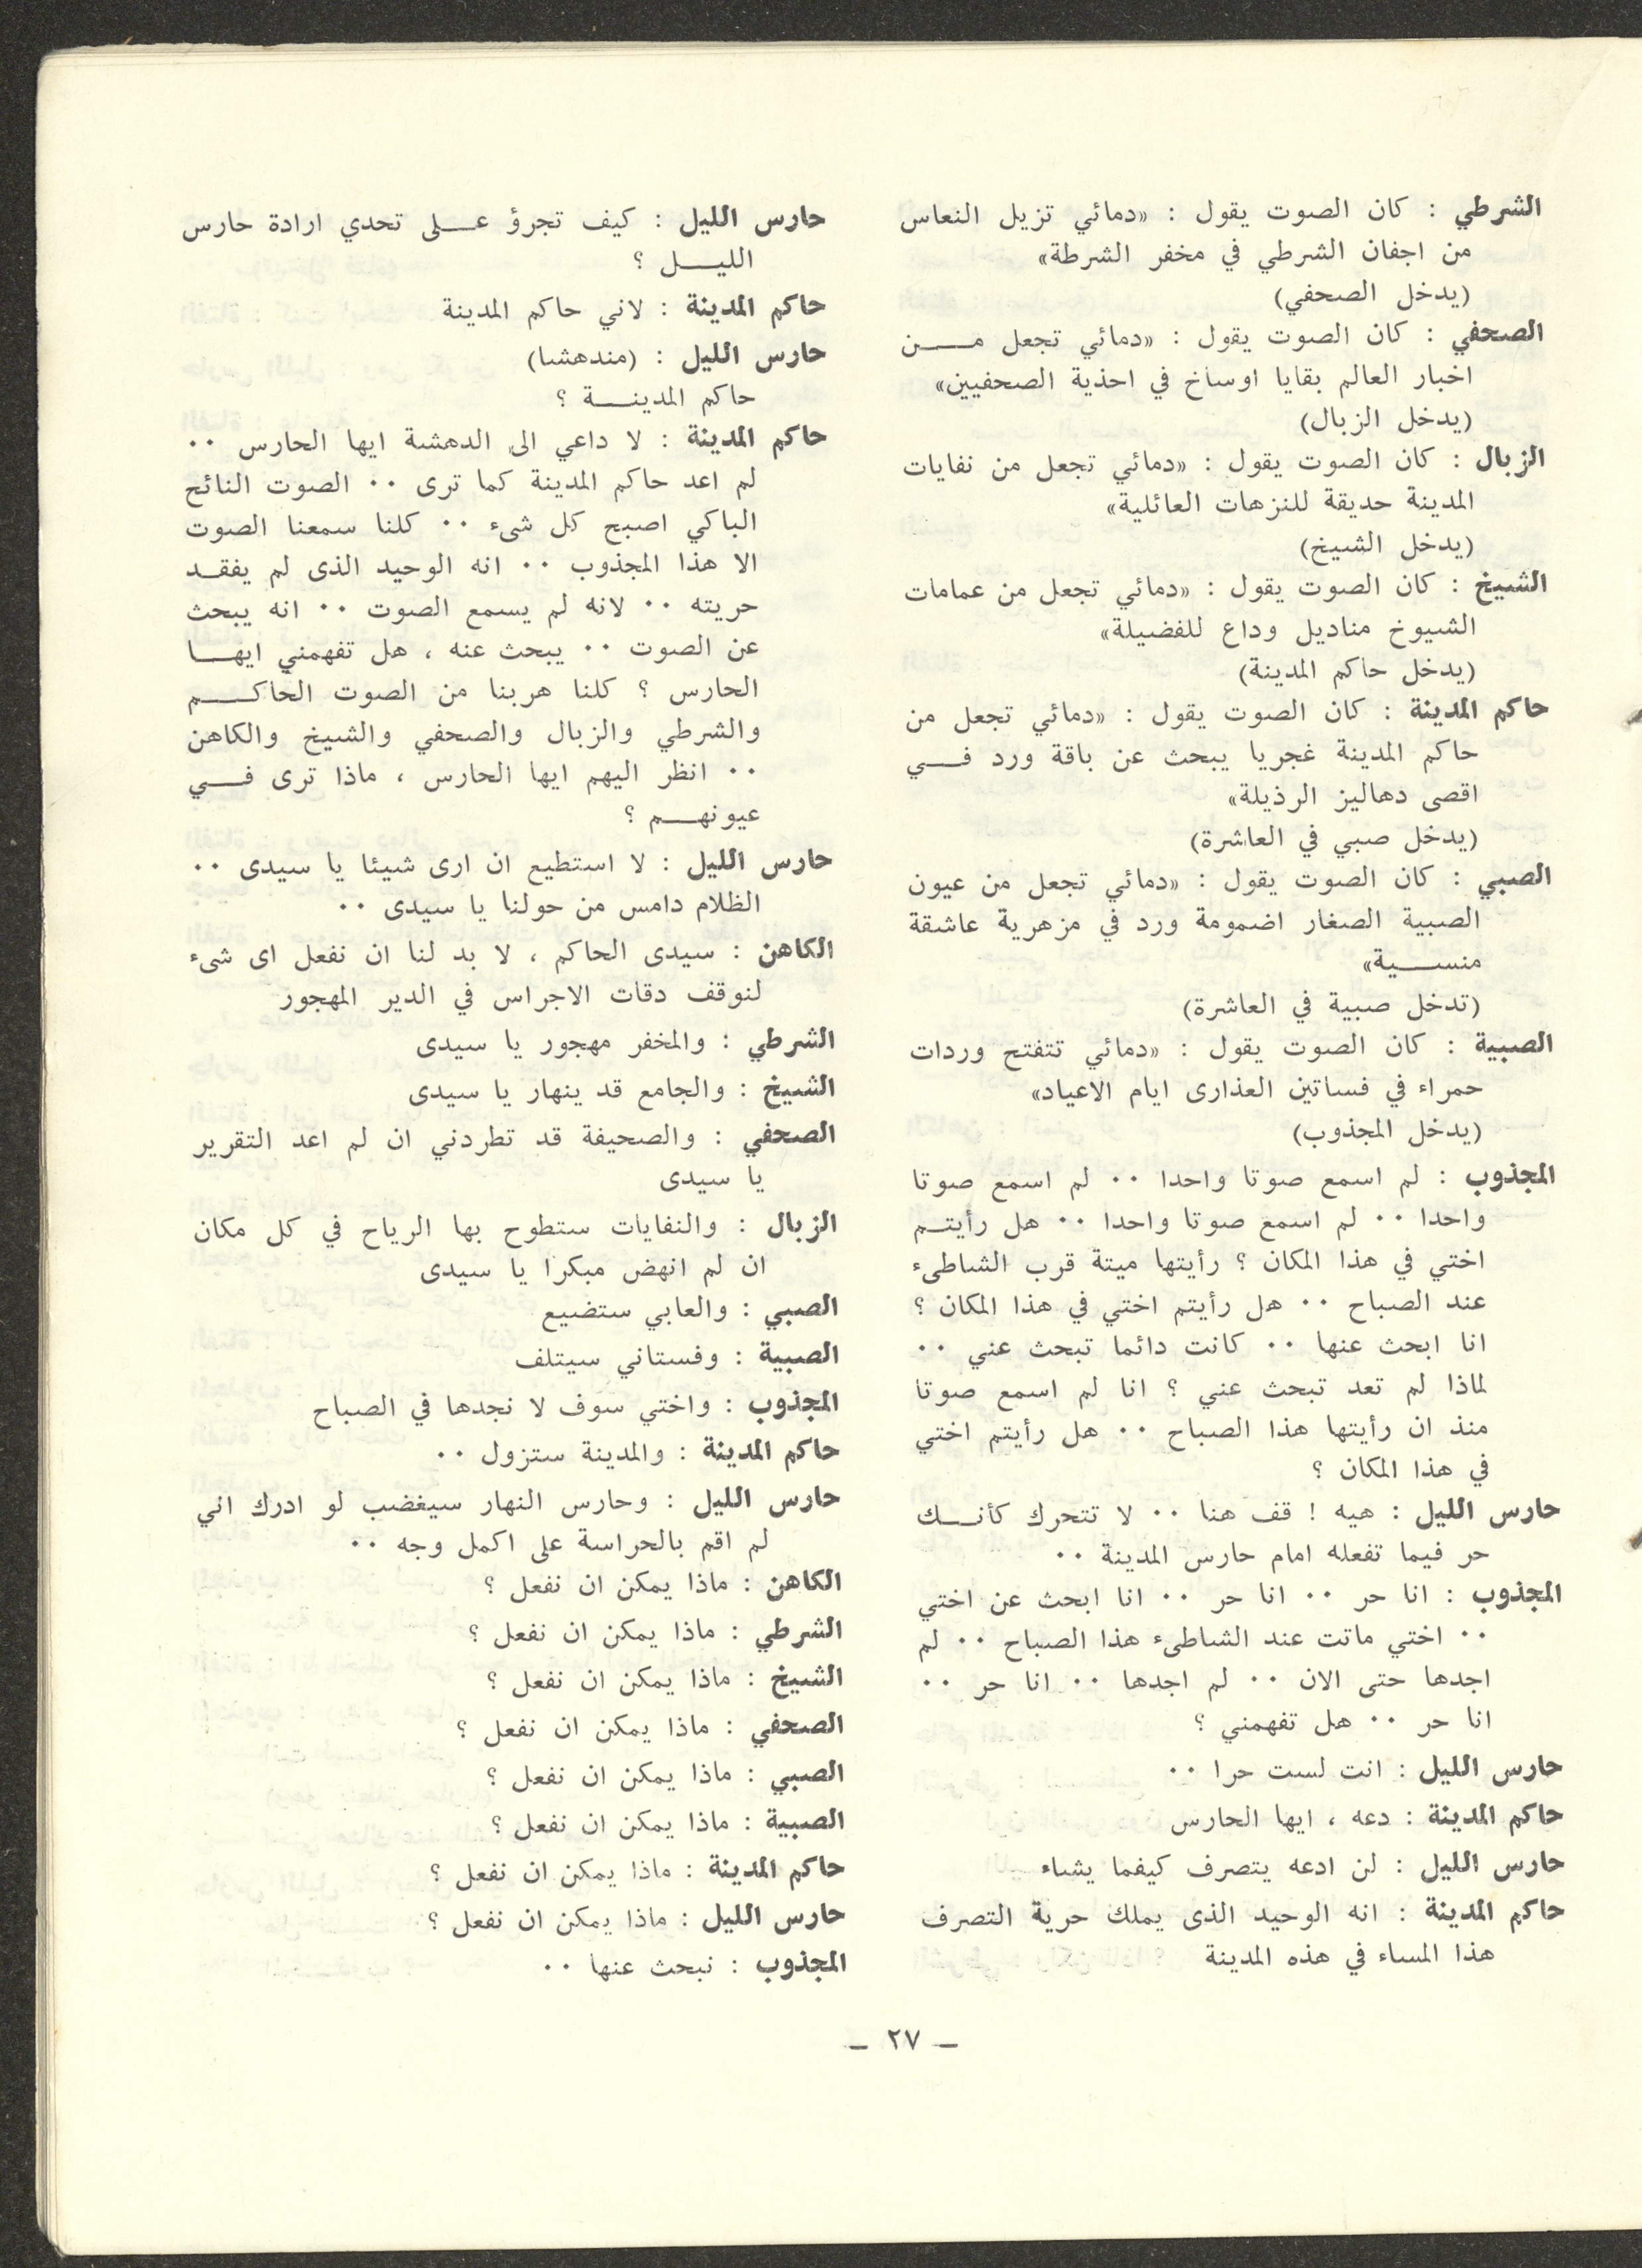 الشرطي : كان الصوت يقول : «دمائي تزيل النعاس
من اجفان الشرطي في مخفر الشرطة»
(يدخل الصحفي)
الصحفي : كان الصوت يقول : «دمائي تجعل مـــن
اخبار العالم بقايا اوساخ في احذية الصحفيين»
(يدخل الزبال)
الزبال : كان الصوت يقول : «دمائي تجعل من نفايات
المدينة حديقة للنزهات العائلية»
(يدخل الشيخ)
الشيخ : كان الصوت يقول : «دمائي تجعل من عمامات
الشيوخ مناديل وداع للفضيلة»
(يدخل حاكم المدينة)
حاكم المدينة : كان الصوت يقول : «دمائي تجعل من
حاكم المدينة غجريا يبحث عن باقة ورد فـــي
اقصى دهاليز الرذيلة»
(يدخل صبي في العاشرة)
الصبي : كان الصوت يقول : «دمائي تجعل من عيون
الصبية الصغار اضمومة ورد في مزهرية عاشقة
منســـية»
(تدخل صبية في العاشرة)
الصبية : كان الصوت يقول : «دمائي تتفتح وردات
حمراء في فساتين العذارى ايام الاعياد»
(يدخل المجذوب)
المجذوب : لم اسمع صوتا واحدا ٠٠ لم اسمع صوتا
واحدا ٠٠ لم اسمع صوتا واحدا ٠٠ هل رأيتـم
اختي في هذا المكان ؟ رأيتها ميتة قرب الشاطىء
عند الصباح ٠٠ هل رأيتم اختي في هذا المكان ؟
انا ابحث عنها ٠٠ كانت دائما تبحث عني ٠٠
لماذا لم تعد تبحث عني ؟ انا لم اسمع صوتا
منذ ان رأيتها هذا الصباح ٠٠ هل رأيتم اختي
في هذا المكان ؟
حارس الليل : هيه ! قف هنا ٠٠ لا تتحرك كأنـــك
حر فيما تفعله امام حارس المدينة ٠٠
المجذوب : انا حر ٠٠ انا حر ٠٠ انا ابحث عن اختي
٠٠ اختي ماتت عند الشاطىء هذا الصباح ٠٠ لم
اجدها حتى الان ٠٠ لم اجدها ٠٠ انا حر ٠٠
انا حر ٠٠ هل تفهمني ؟
حارس الليل : انت لست حرا ٠٠
حاكم المدينة : دعه ، ايها الحارس
حارس الليل : لن ادعه يتصرف كيفما يشاء
حاكم المدينة : انه الوحيد الذى يملك حرية التصرف
هذا المساء في هذه المدينة
حارس الليل : كيف تجرؤ عـــلى تحدي ارادة حارس
الليـــل ؟
حاكم المدينة : لاني حاكم المدينة
حارس الليل : (مندهشا)
حاكم المدينـــة ؟
حاكم المدينة : لا داعي الى الدهشة ايها الحارس ٠٠
لم اعد حاكم المدينة كما ترى ٠٠ الصوت النائح
الباكي اصبح كل شىء ٠٠ كلنا سمعنا الصوت
الا هذا المجذوب ٠٠ انه الوحيد الذى لم يفقـد
حريته ٠٠ لانه لم يسمع الصوت ٠٠ انه يبحث
عن الصوت ٠٠ يبحث عنه ، هل تفهمني ايهـــا
الحارس ؟ كلنا هربنا من الصوت الحاكـــم
والشرطي والزبال والصحفي والشيخ والكاهن
٠٠ انظر اليهم ايها الحارس ، ماذا ترى فـــي
عيونهـــم ؟
حارس الليل : لا استطيع ان ارى شيئا يا سيدى ٠٠
الظلام دامس من حولنا يا سيدى ٠٠
الكاهن : سيدى الحاكم ، لا بد لنا ان نفعل اى شىء
لنوقف دقات الاجراس في الدير المهجور
الشرطي : والمخفر مهجور يا سيدى
الشيخ : والجامع قد ينهار يا سيدى
الصحفي : والصحيفة قد تطردني ان لم اعد التقرير
يا سيدى
الزبال : والنفايات ستطوح بها الرياح في كل مكان
ان لم انهض مبكرا يا سيدى
الصبي : والعابي ستضيع
الصبية : وفستاني سيتلف
المجذوب : واختي سوف لا نجدها في الصباح
حاكم المدينة : والمدينة ستزول ٠٠
حارس الليل : وحارس النهار سيغضب لو ادرك اني
لم اقم بالحراسة على اكمل وجه ٠٠
الكاهن : ماذا يمكن ان نفعل ؟
الشرطي : ماذا يمكن ان نفعل ؟
الشيخ : ماذا يمكن ان نفعل ؟
الصحفي : ماذا يمكن ان نفعل ؟
الصبي : ماذا يمكن ان نفعل ؟
الصبية : ماذا يمكن ان نفعل ؟
حاكم المدينة : ماذا يمكن ان نفعل ؟
حارس الليل : ماذا يمكن ان نفعل ؟
المجذوب : نبحث عنها ٠٠
– ٢٧ –